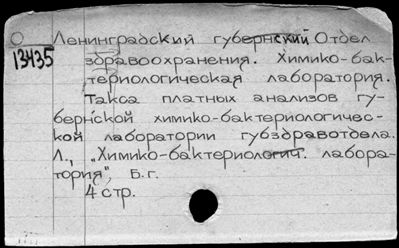 О Ленинградский губернский Отдел
13435 здравоохранения. Химико-бак-
териологическая лаборатория.
Такса платных анализов гу-
бернской химико-бактериологичес-
кой лаборатории губздравотдела.
Л., "Химико-бактериологич. лабора-
тория", Б.г.
4 стр.